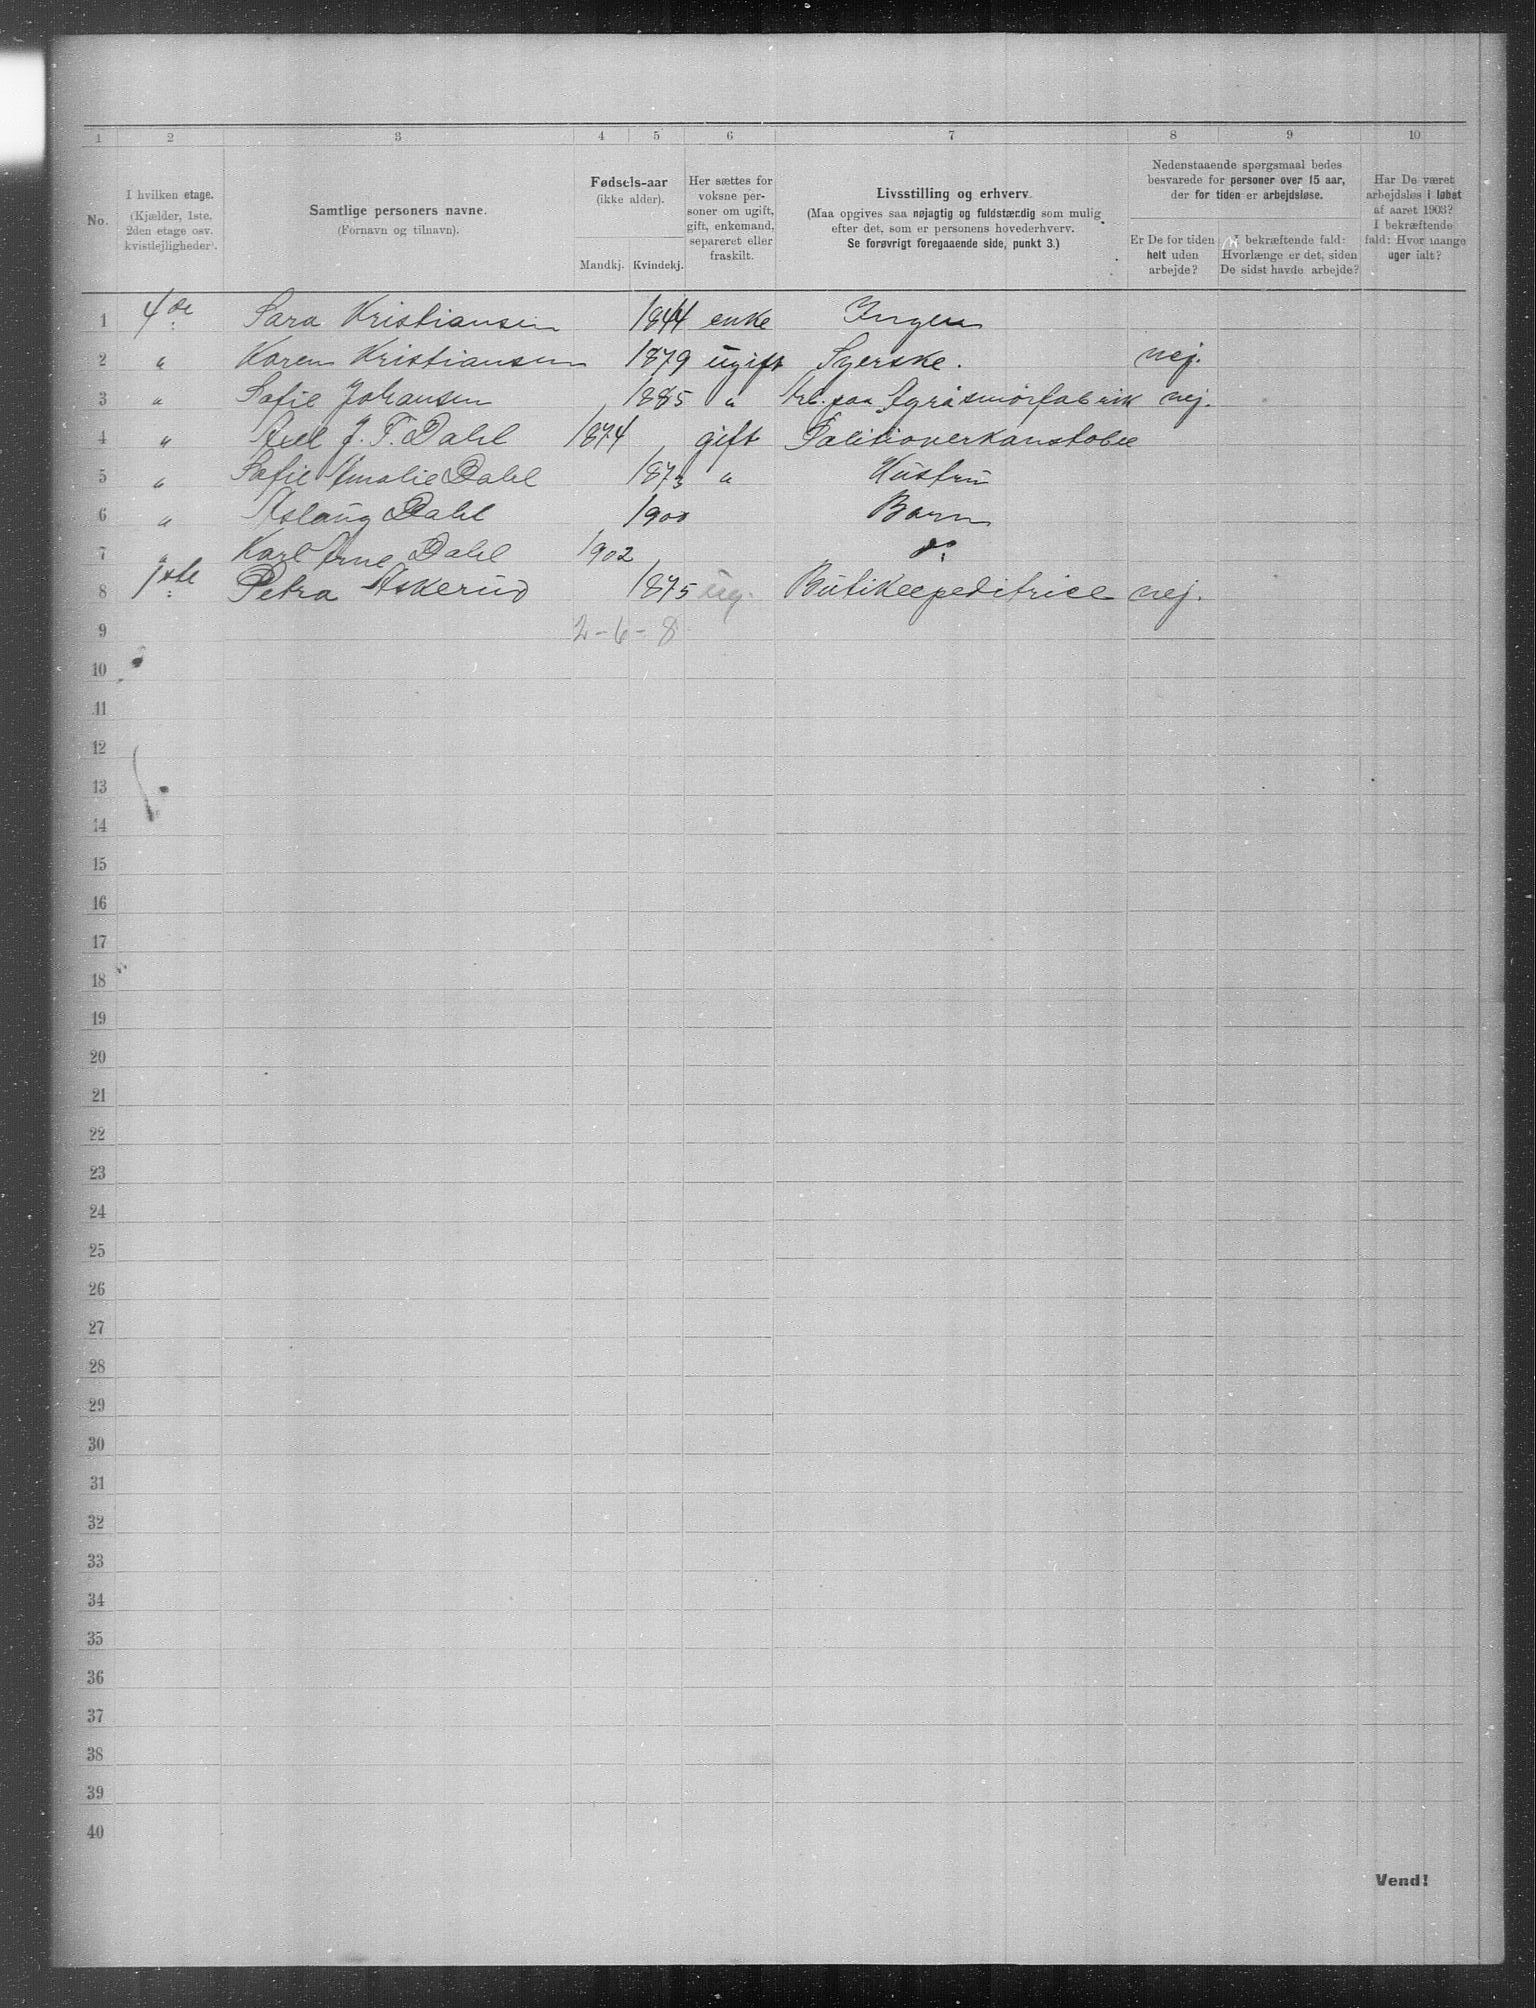 1 2 3 4 5 6 7 8 9 10
No.
I hvilken etage.
(Kjælder, 1ste,
2den etage osv.
kvistlejligheder).
Samtlige personers navne.
(Fornavn og tilnavn).
Fødsels-aar
(ikke alder).
Mandkj. Kvindekj.
Her sættes for
voksne per-
soner om ugift,
gift, enkemand,
separeret eller
fraskilt.
Livsstilling og erhverv.
(Maa opgives saa nøjagtig og fuldstændig som mulig
efter det, som er personens hovederhverv.
Se forøvrigt foregaaende side, punkt 3.)
Nedenstaaende spørgsmaal bedes
besvarede for personer over 15 aar,
der for tiden er arbejdsløse.
Er De for tiden
helt uden
arbejde?
I bekræftende fald:
Hvorlænge er det, siden
De sidst havde arbejde?
Har De været
arbejdsløs i løbet
af aaret 1903?
I bekræftende
fald: Hvor mange
uger ialt?
1 4de Sara Kristiansen 1844 enke Ingen
2 " Karen Kristiansen 1879 ugift Syerske. nej.
3 " Sofie Johansen 1885 " Arb. paa Agrasmörfabrik nej.
4 " Axel J. T. Dahl 1874 gift Politioverkonstabel
5 " Sofie Amalie Dahl 1873 " Hustru
6 " Aslaug Dahl 1900 Barn
7 " Karl Arne Dahl 1902 do
8 1ste Petra Askerud 1875 ug. Butikexpeditrice nej.
9 2-6-8
10
11
12
13
14
15
16
17
18
19
20
21
22
23
24
25
26
27
28
29
30
31
32
33
34
35
36
37
38
39
40
Vend!